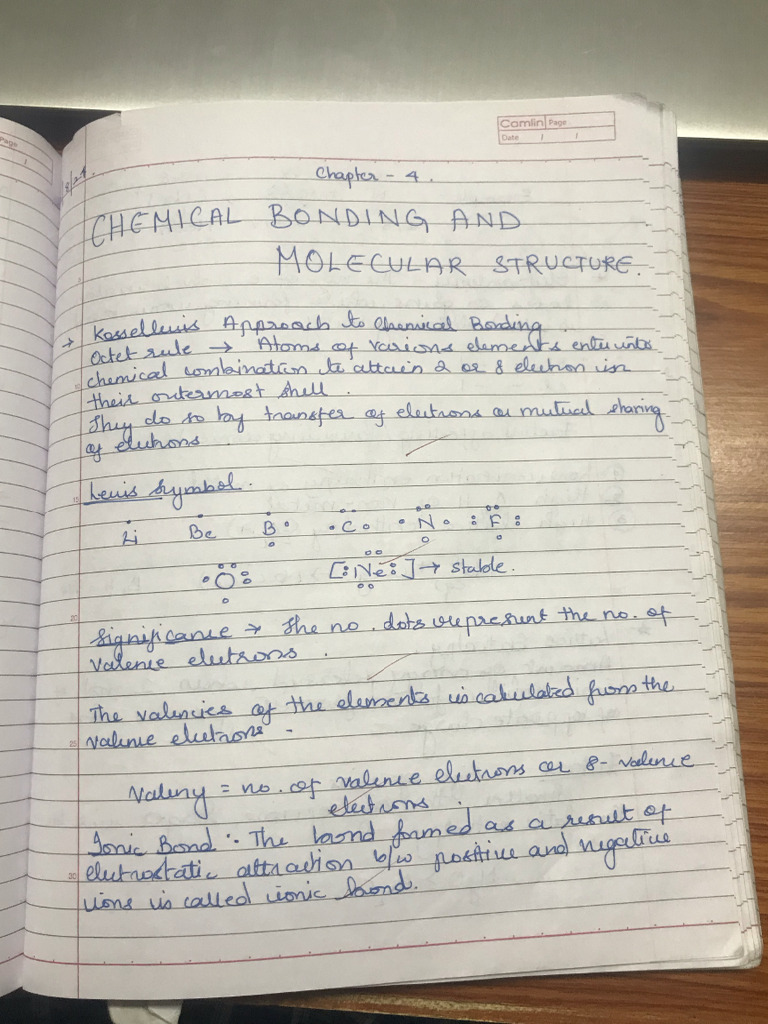 Camlin Page
Date / /
Page
/8/24.
Chapter - 4.
CHEMICAL BONDING AND
MOLECULAR STRUCTURE.
→ Kossellewis Approach to Chemical Bonding.
Octet rule → Atoms of various elements enter into
chemical combination to attain 2 or 8 electron in
their outermost shell.
They do so by transfer of electrons or mutual sharing
of electrons
Lewis Symbol.
Li Be B C N F
O [Ne] → stable.
Significance → The no. dots represent the no. of
valence electrons.
The valencies of the elements is calculated from the
valence electrons.
Valency = no. of valence electrons or 8 - valence
electrons.
Ionic Bond :- The bond formed as a result of
electrostatic attraction b/w positive and negative
ions is called ionic bond.
10
15
20
25
30